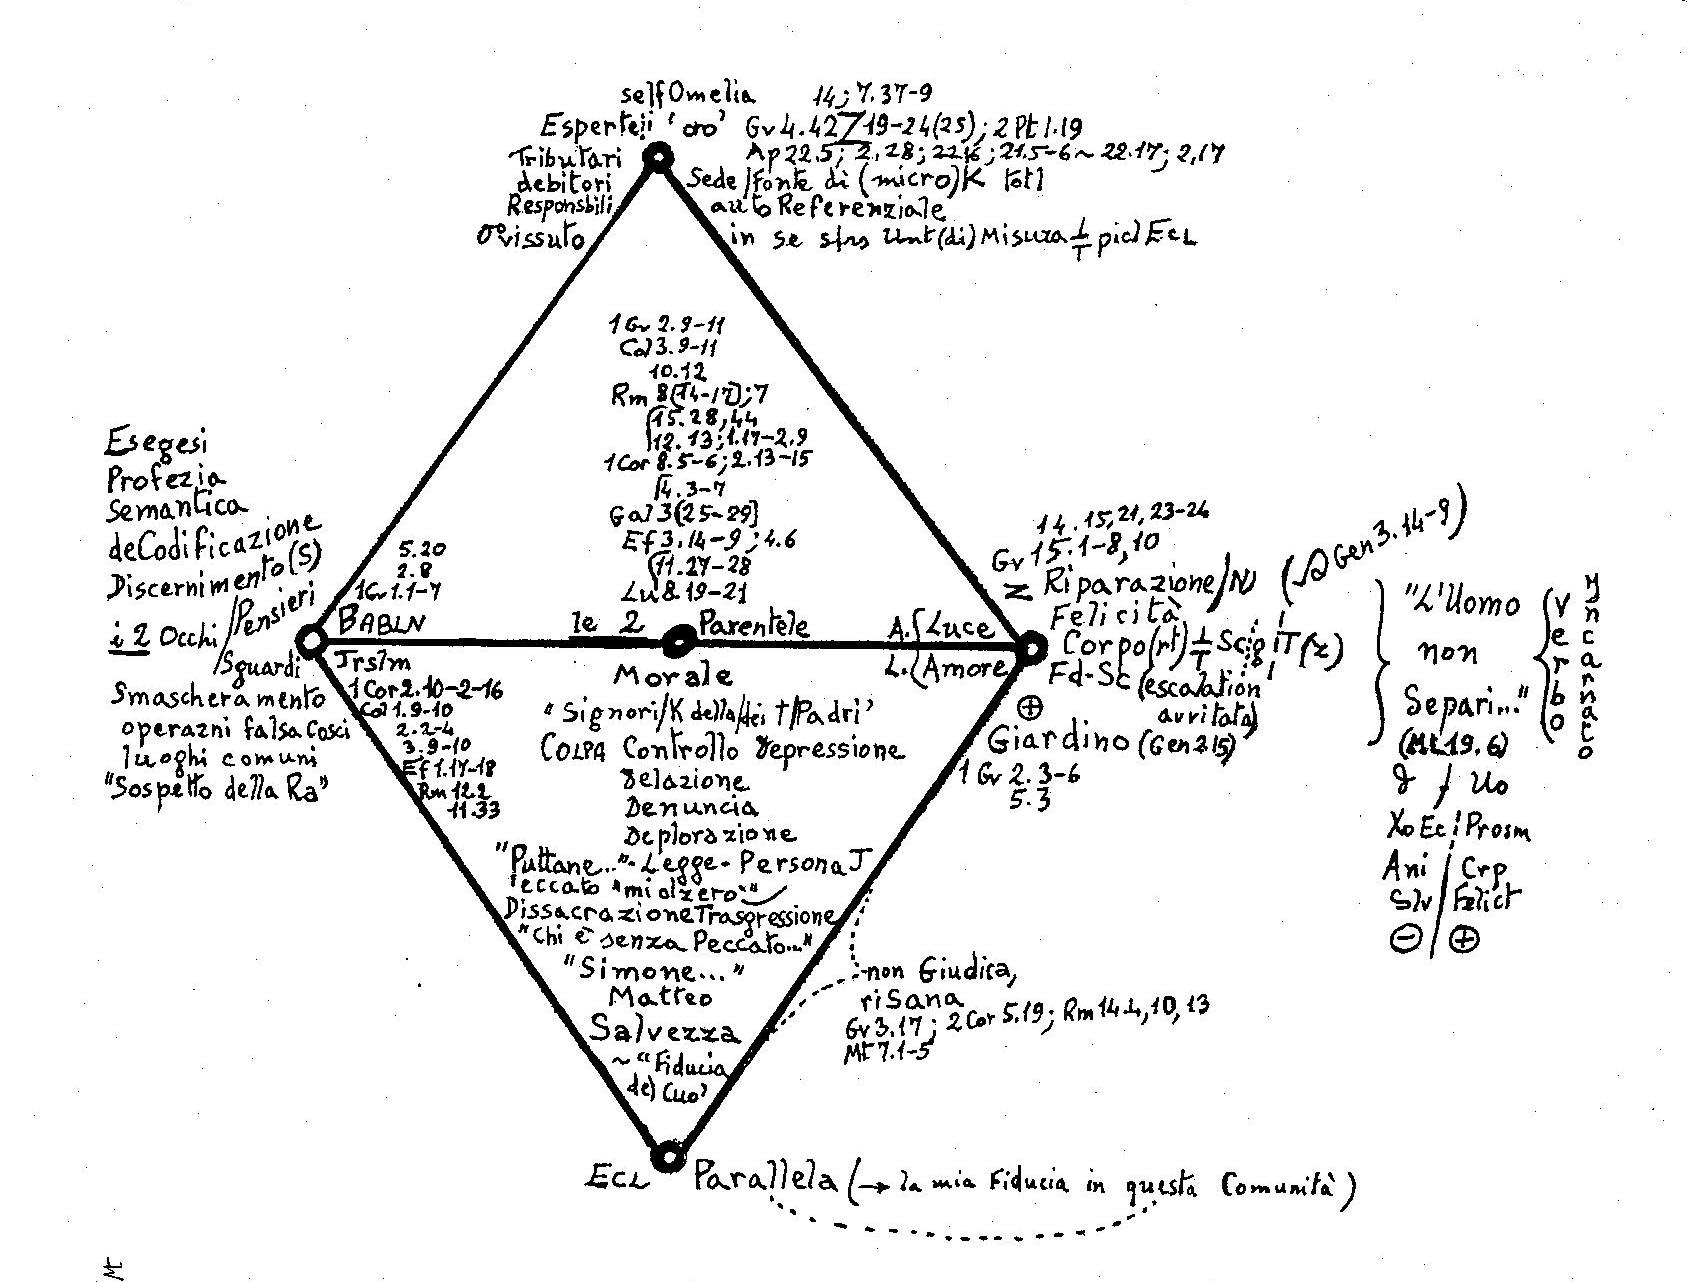 selfOmelia 14; 7.37-9
Esperteli 'oro' Gv 4.42 19-24(25); 2 Pt 1.19
Tributari
debitori
Responsbili
vissuto
Ap 22.5; 2,28; 22.16; 21.5-6~22.17; 2,17
Sede/fonte di (micro)K totl
autoReferenziale
in se stss Unt(di) Misura picl EcL
1Gv 2.9-11
Col 3.9-11
10.12
Rm 8(14-17);7
15.28,44
12.13;1.17-2.9
1Cor 8.5-6; 2.13-15
4.3-7
Gal 3(25-29)
Ef 3.14-9; 4.6
11.27-28
Lu 8.19-21
Esegesi
Profezia
Semantica
deCodificazione
Discernimento(s)
/Pensieri
i 2 Occhi
/Sguardi
Smascheramento
operazni falsa Cosci
luoghi comuni
"Sospetto della Ra"
5.20
2.8
1Gv 1.1-7
BABLN
Jrslm
1Cor 2.10-2-16
Col 1.9-10
2.2-4
3.9-10
Ef 1.17-18
Rm 12.2
11.33
le 2 Parentele
A. Luce
L. (Amore
Morale
"Signori/K della/dei †/Padri"
COLPA Controllo depressione
delazione
Denuncia
Deplorazione
"Puttane.."- Legge - Persona J
Peccato "mi alzerò"
Dissacrazione Trasgressione
"Chi è senza Peccato..."
"Simone..."
Matteo
Salvezza
~ "Fiducia
del Cuo'
14.15,21,23-24
Gv 15.1-8,10
Riparazione/N (Gen 3.14-9)
Felicità
Corpo(rt) Scig iT(z)
Fd-Sc (escalation
avvitata)
⊕
Giardino (Gen 2.15)
1 Gv 2.3-6
5.3
"L'Uomo
non
Separi..."
(Mt 19.6)
Uo
Xo Ec / Prosm
Ani / Crp
Slv / Felict
⊖ / ⊕
Verbo
Yncarnato
non Giudica,
riSana
Gv 3.17; 2 Cor 5.19; Rm 14.4,10,13
Mt 7.1-5
ECL Parallela (→ la mia Fiducia in questa Comunità)